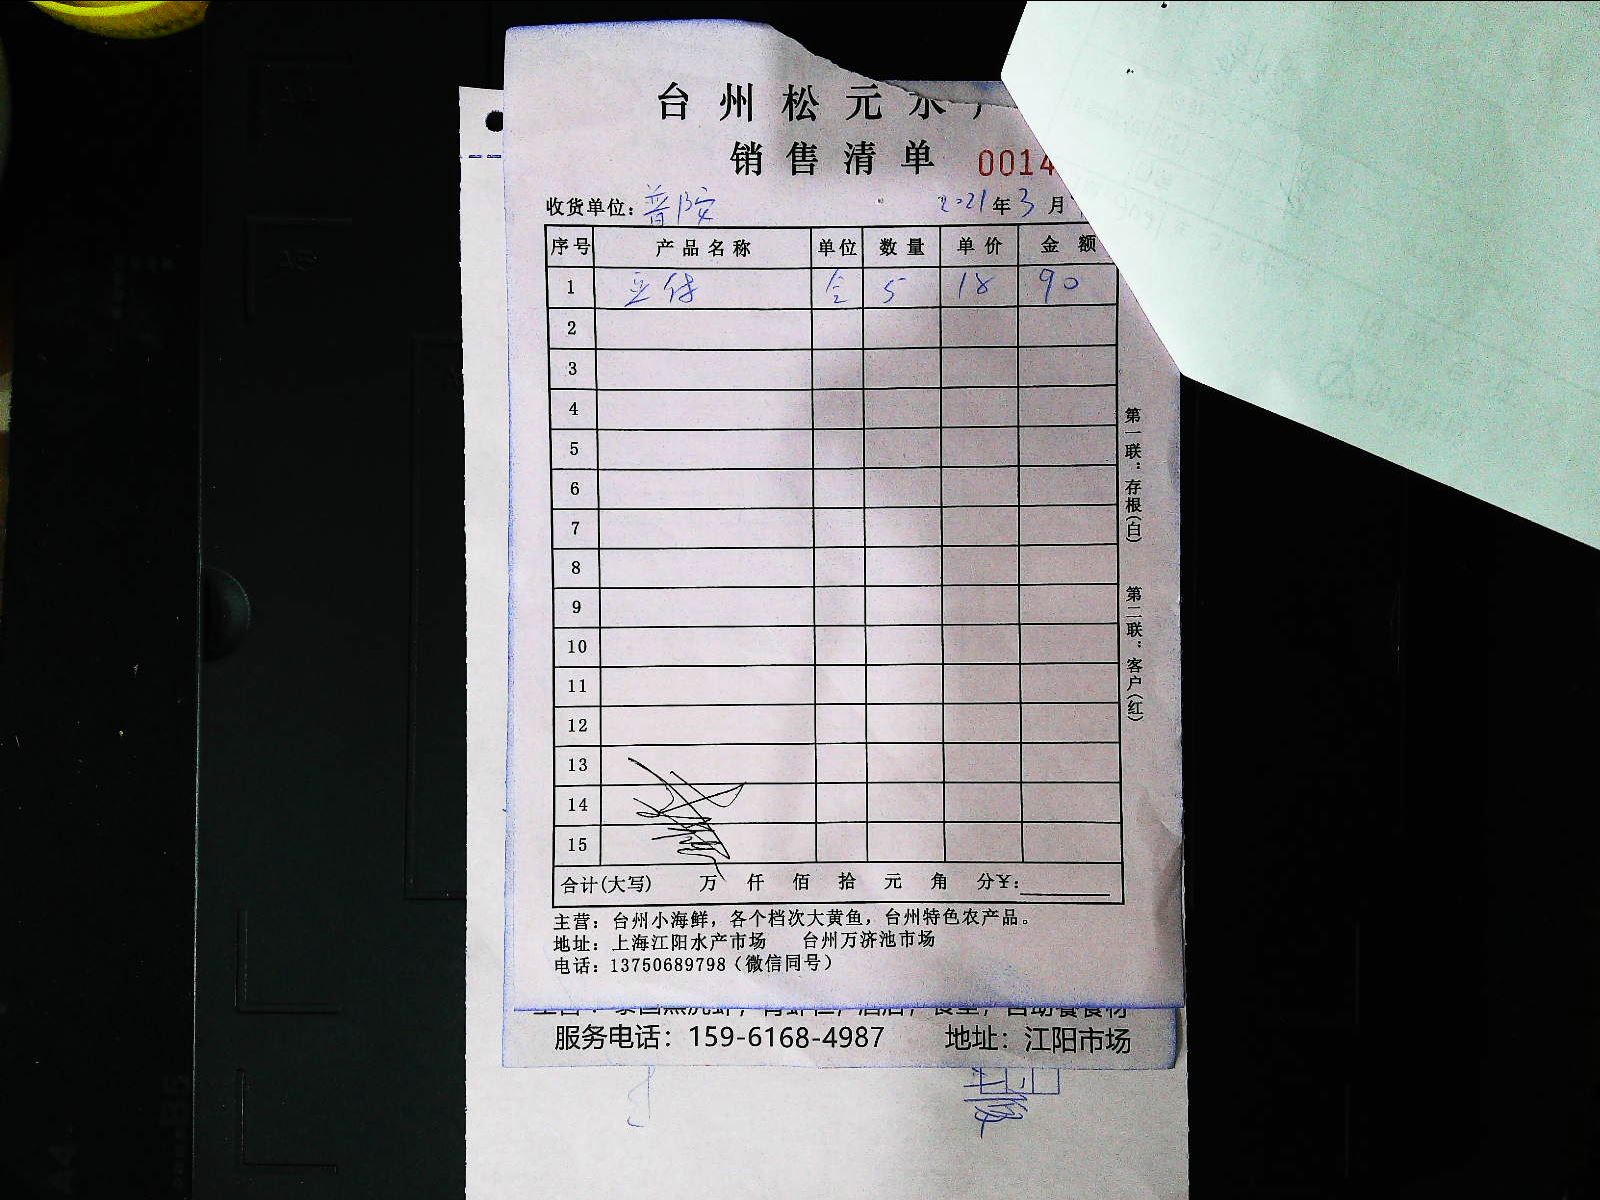 台州松元水产
销售清单 0014
收货单位：普陀 2021年3月
序号 产品名称 单位 数量 单价 金额
1 5 18 90
2
3
4
5
6
7
8
9
10
11
12
13
14
15
合计(大写) 万 仟 佰 拾 元 角 分¥：
主营：台州小海鲜，各个档次大黄鱼，台州特色农产品。
地址：上海江阳水产市场 台州万济池市场
电话：13750689798（微信同号）
第一联：存根(白) 第二联：客户(红)
服务电话：159-6168-4987 地址：江阳市场